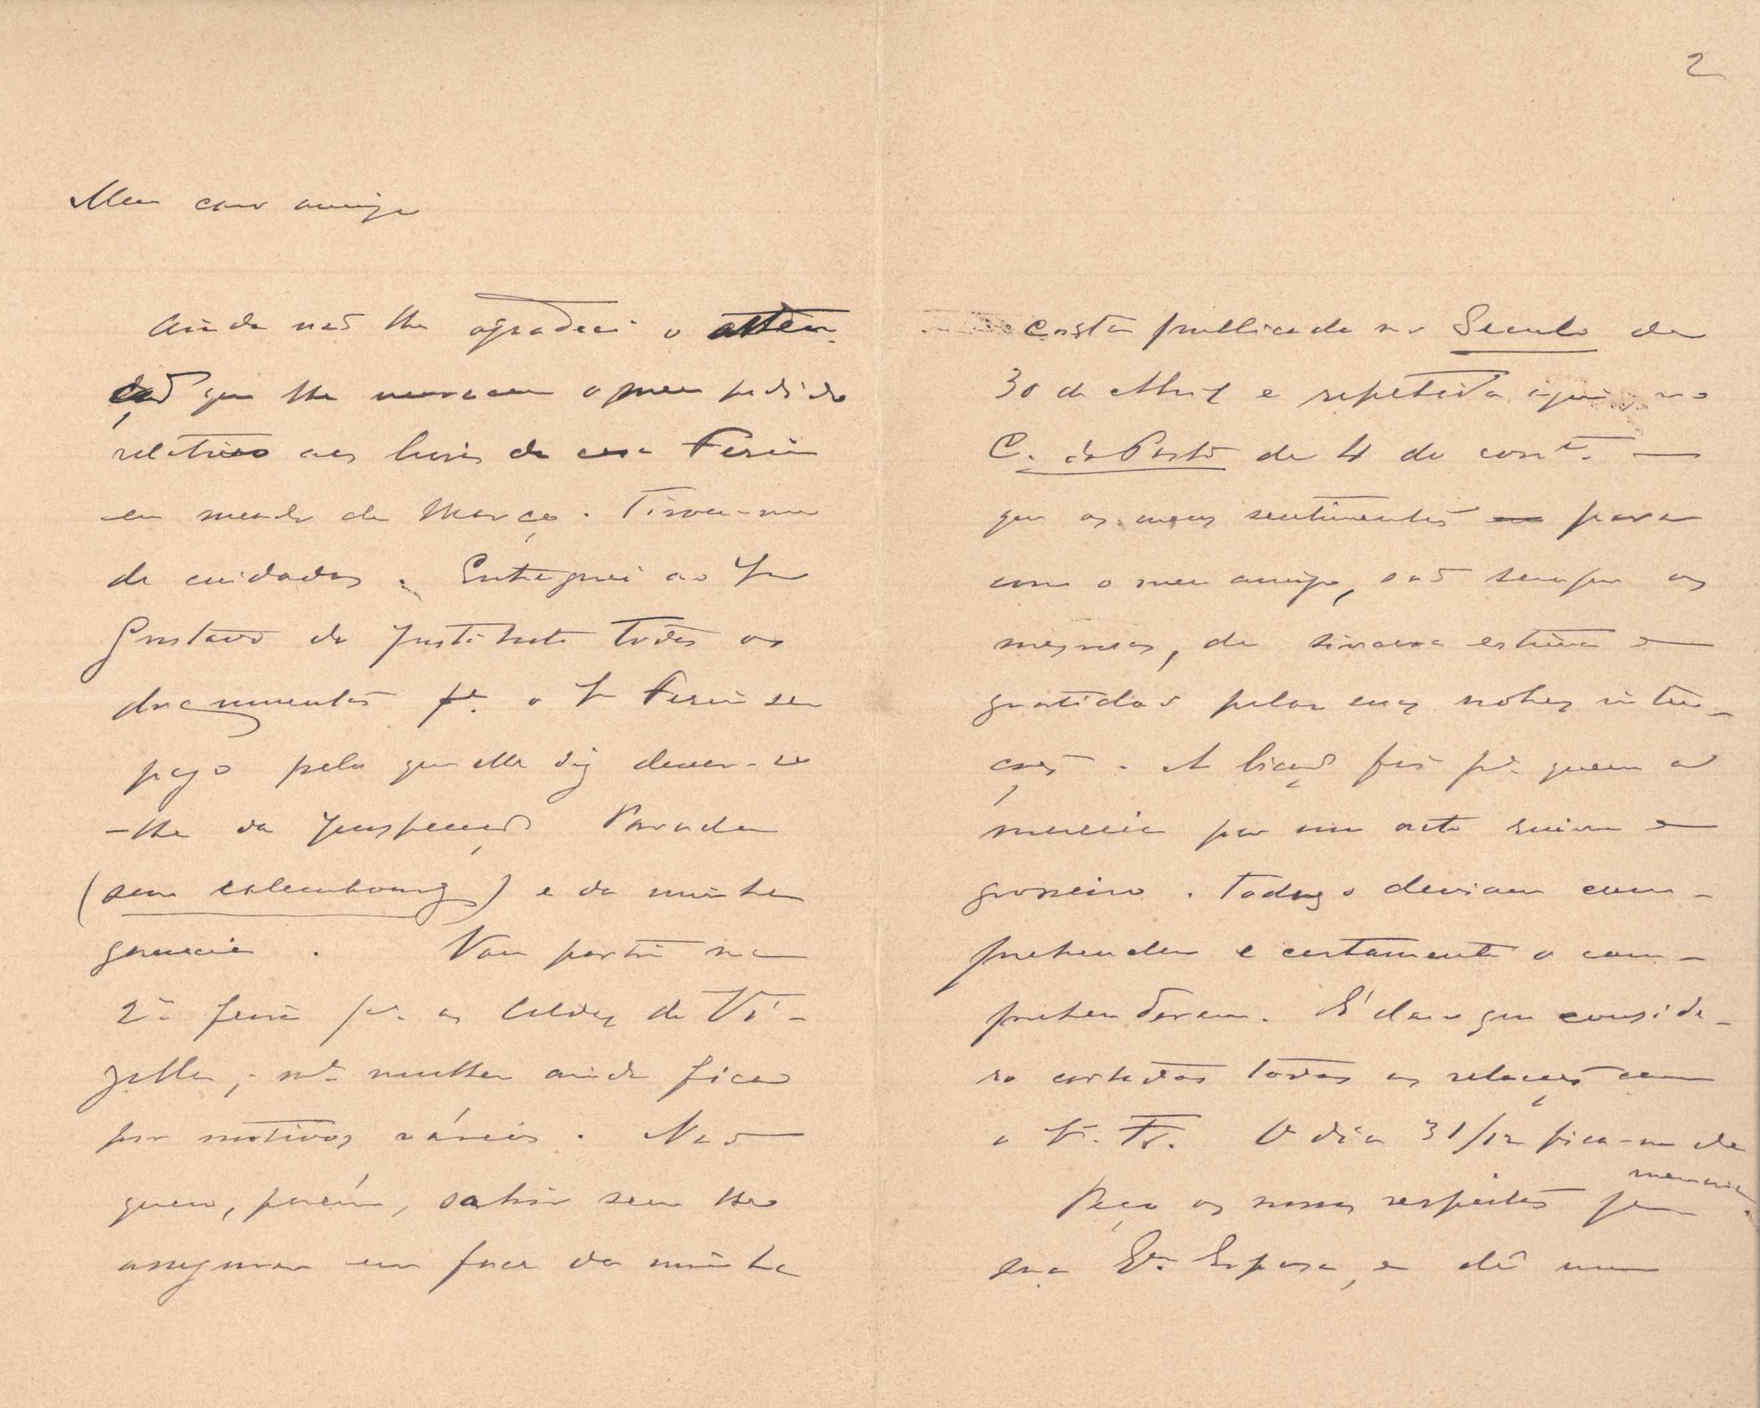 Meu caro amigo
Ainda não lhe agradeci a atten-
ção que lhe mereceu o meu pedido
relativo aos livros da casa Ferin
em meado de Março. Tirou-me
de cuidados. Entreguei ao Sr
Gustavo do Instituto todos os
documentos pª o Sr Ferin ser
pago pelo que elle diz dever-se
-lhe da Inspecção Parada
(sem calembourg) e da minha
gerencia. Vou partir na
2ª feira pª as Caldas de Vi-
zella; mª mulher ainda fica
por motivos vários. Não
quero, porém, sahir sem lhe
assegurar em face da minha
2
carta publicada no Seculo de
30 de Abril e repetida aqui no
C. do Porto de 4 do corrte. —
que os meus sentimentos para
com o meu amigo, são sempre os
mesmos, de sincera estima e
gratidão pelas suas nobres inten-
ções. A lição foi pª quem a
merecia por um acto ruim e
grosseiro. Todos o deviam com-
prehender e certamente o com-
prehenderam. É claro que conside-
ro cortadas todas as relações com
o O dia 31/12 fica-me de
memoria.
Peço os nossos respeitos para
sua Exª Esposa, e dê um